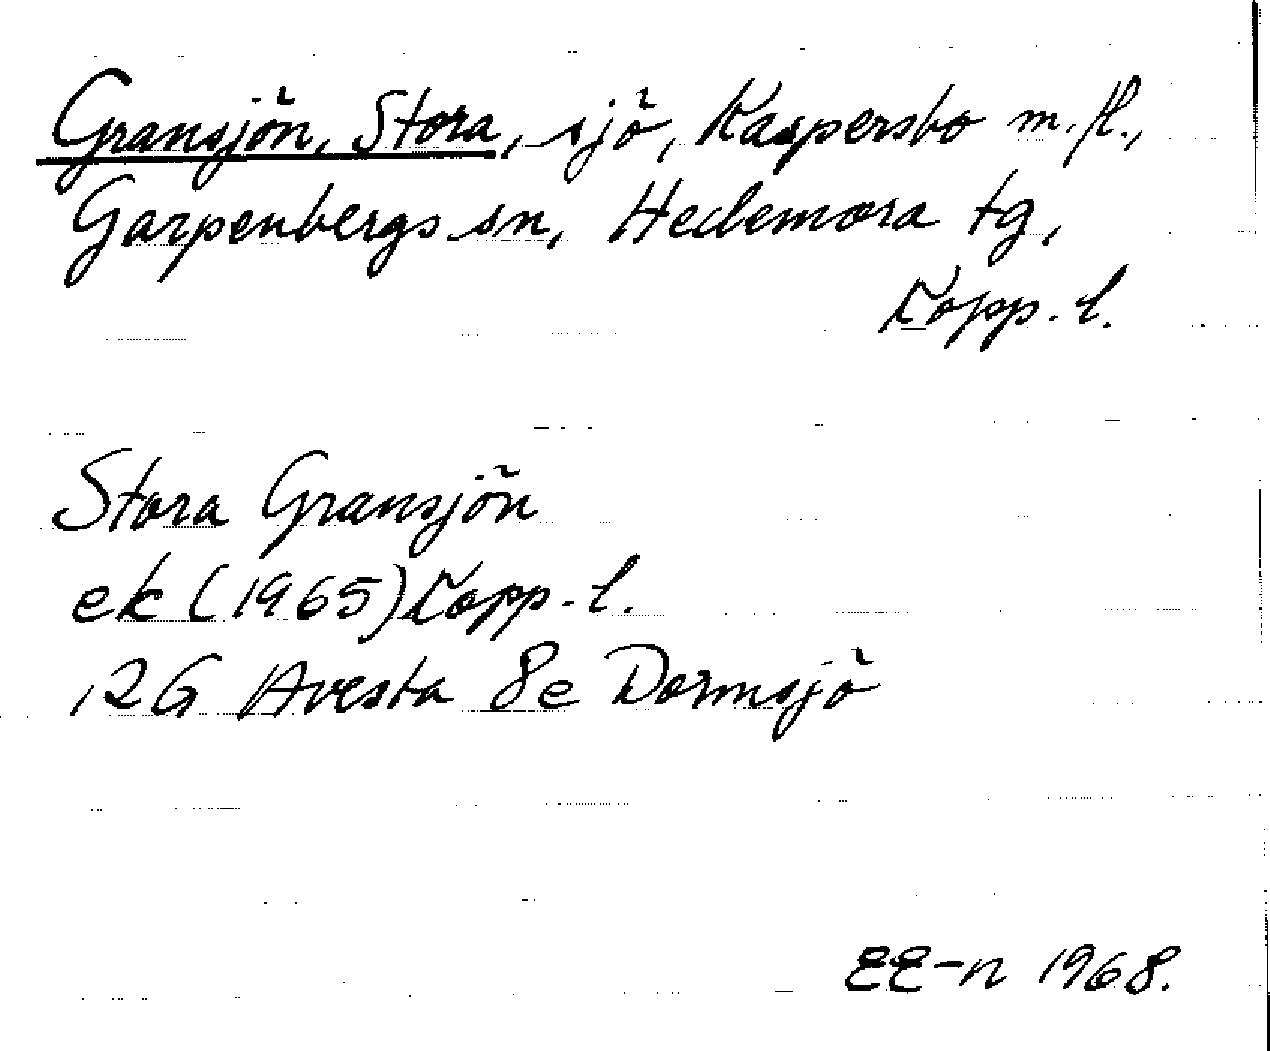 Gransjön, Stora, sjö, Kaspersbo m.fl.,
Garpenbergs sn, Hedemora tg,
Kopp. l.
Stora Gransjön
ek (1965) Kopp. l.
12G Avesta 8e Dormsjö
EE-n 1968.